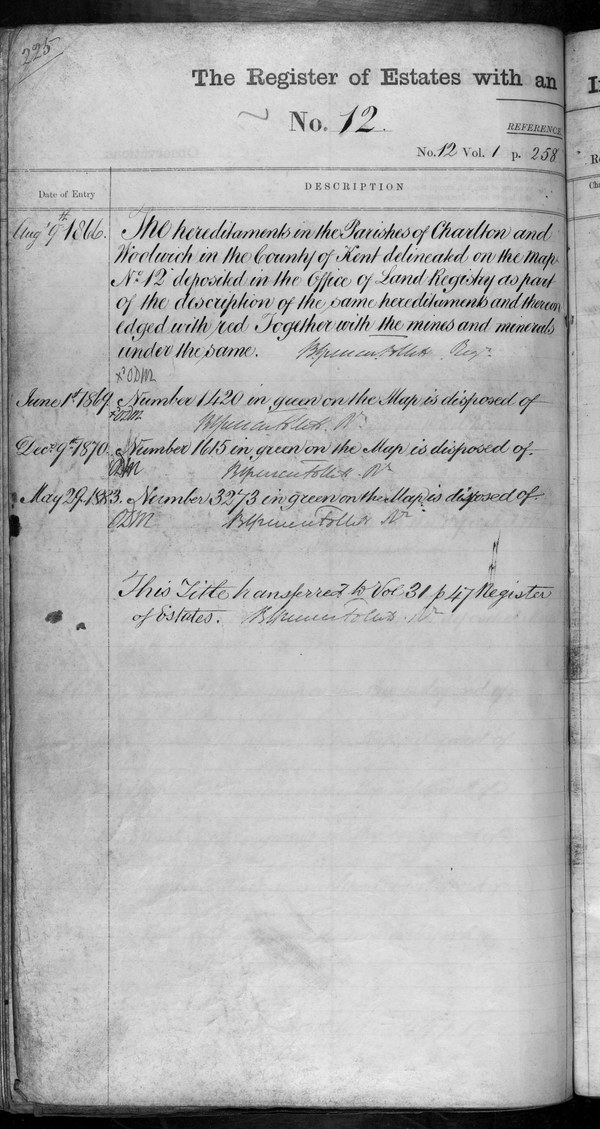 225
The Register of Estates with an
No. 12.
REFERENCE
No. 12 Vol. 1 p. 258
Date of Entry
DESCRIPTION
Augt 9th 1866. The hereditaments in the Parishes of Charlton and
Woolwich in the County of Kent delineated on the Map
No 12 deposited in the Office of Land Registry as part
of the description of the same hereditaments and thereon
edged with red Together with the mines and minerals
under the same. Brent Spencer Follett Regr
x ODM
June 1st 1869. Number 1420 in green on the Map is disposed of
x ODM
Decr 9th 1870. Number 1615 in green on the Map is disposed of.
ODM
May 29. 1883. Number 3273 in green on the Map is disposed of
ODM
This Title transferred to Vol 31 p 47 Register
of Estates.